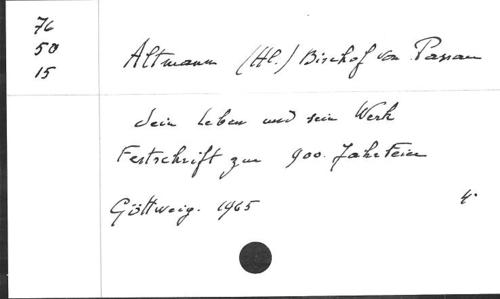 76
50
15
Altmann (Hl.) Bischof von Passau
Sein Leben und sein Werk
Festschrift zur 900. Jahrfeier
Göttweig. 1965
4°